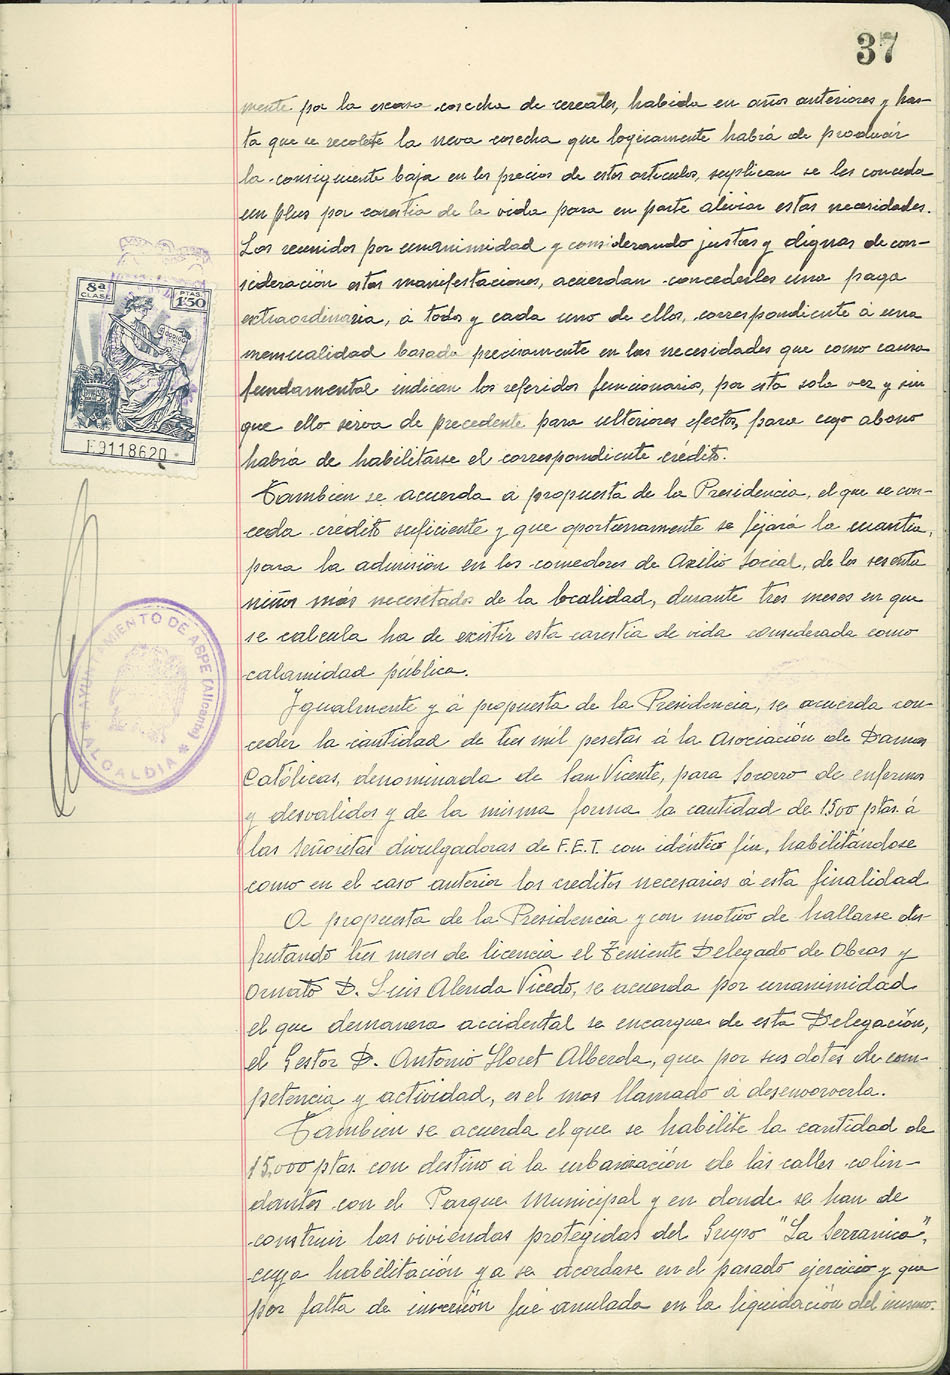 37
mente por la escasa cosecha de cereales, habida en años anteriores y has-
ta que se recolete la neva cosecha que logicamente habrá de producir
la consiguiente baja en los precios de estos articulos, suplican se les conceda
un plus por carestia de la vida para en parte aleviar estas necesidades.
Los reunidos por unanimidad y considerando justas y dignas de con-
sideración estas manifestaciones, acuerdan concederles una paga
extraordinaria, á todos y cada uno de ellos, correspondiente á una
mensualidad basada precisamente en las necesidades que como causa
fundamental indican los referidos funcionarios, por esta sola vez y sin
que ello serva de precedente para ulteriores efectos, para cuyo abono
habrá de habilitarse el correspondiente crédito.
Tambien se acuerda á propuesta de la Presidencia, el que se con-
ceda crédito suficiente y que oportunamente se fijará la cuantia,
para la admisión en los comedores de Auxilio Social, de los sesenta
niños más necesitados de la localidad, durante tres meses en que
se calcula ha de existir esta carestia de vida considerada como
calamidad pública.
Igualmente y á propuesta de la Presidencia, se acuerda con-
ceder la cantidad de tres mil pesetas á la Asociación de Damas
Católicas, denominada de San Vicente, para Socorro de enfermos
y desvalidos y de la misma forma la cantidad de 1500 ptas. á
las Señoritas divulgadoras de F.E.T. con idéntico fin, habilitándose
como en el caso anterior los creditos necesarios á esta finalidad
A propuesta de la Presidencia y con motivo de hallarse dis-
frutando tres meses de licencia el Teniente Delegado de Obras y
Ornato D. Luis Alenda Vicedo, se acuerda por unanimidad
el que demanera accidental se encargue de esta Delegación,
el Gestor D. Antonio Lloret Alberola, que por sus dotes de com-
petencia y actividad, es el mas llamado á desenvorverla.
Tambien se acuerda el que se habilite la cantidad de
15.000 ptas. con destino á la urbanización de las calles colin-
dantes con el Parque Municipal y en donde se han de
construir las viviendas protegidas del Grupo "La Serranica",
cuya habilitación ya se acordase en el pasado ejercicio y que
por falta de inversión fué anulada en la liquidación del mismo.
8ª CLASE
PTAS. 1'50
E9118620
AYUNTAMIENTO DE ASPE (Alicante)
ALCALDIA